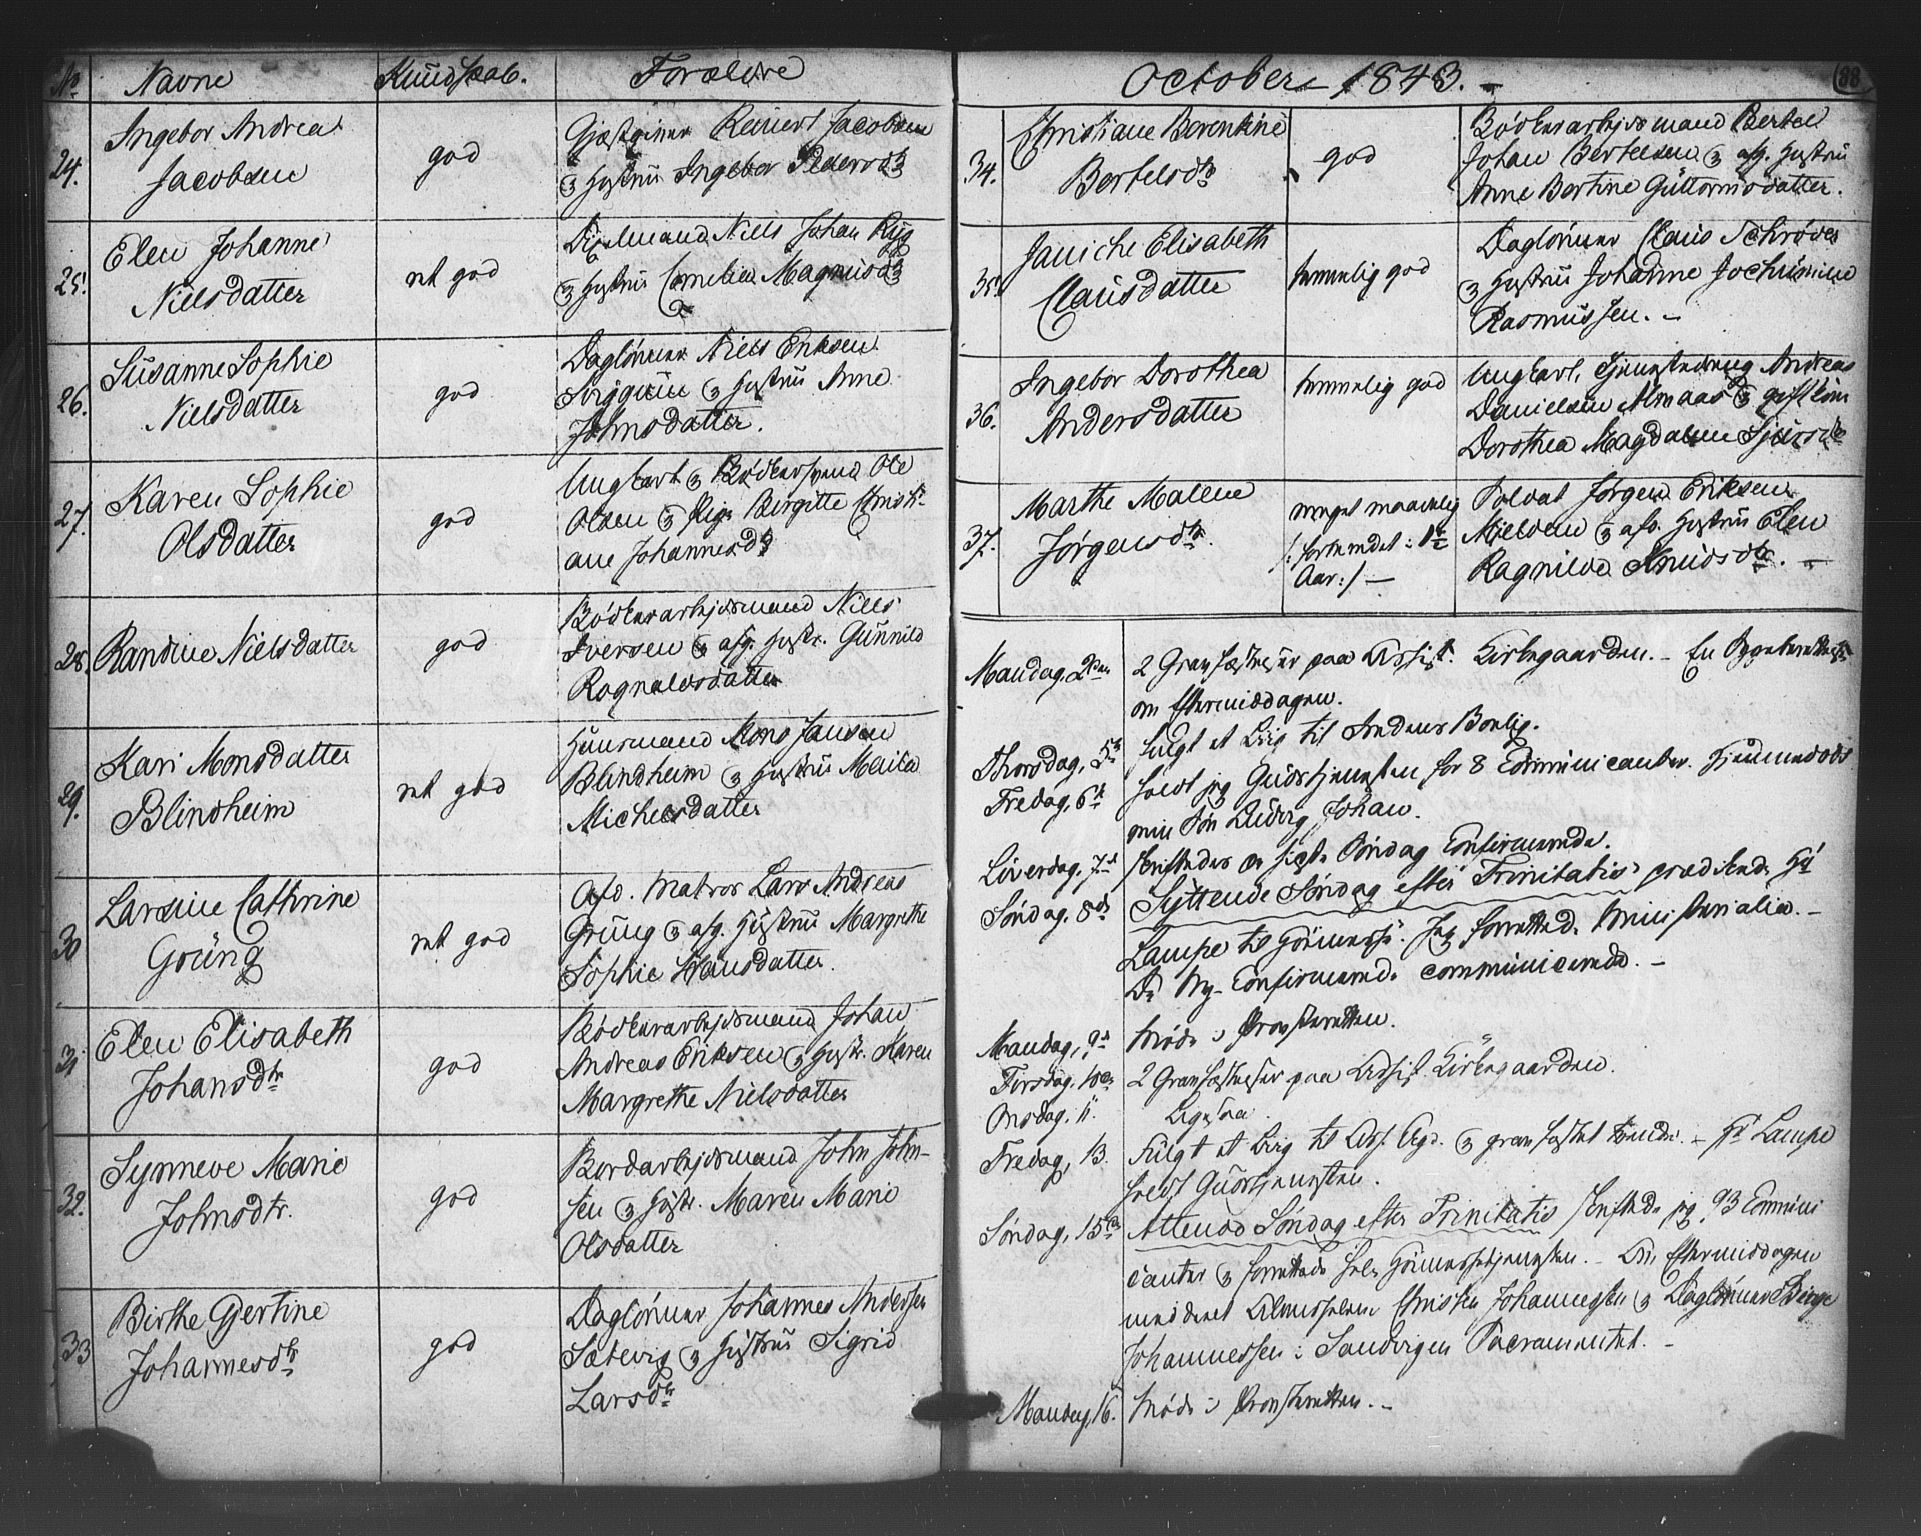 No Navne Kundskab. Forældre
24. Ingebor Andrea
Jacobsen
god
Gjæstgiver Reinert Jacobsen
og Hustru Ingebor Pedersdtr
25. Elen Johanne
Nielsdatter
ret god
Niels Johan Ryg
og Hustru Cornelia Magnusdtr
26. Susanne Sophie
Nielsdatter
god
Daglønner Niels Eriksen
og Hustru Anne
Johnsdatter.
27. Karen Sophie
Olsdatter
god
Ungkarl og Bødkersvend Ole
Olsen og Pige Birgitte Christi-
ane Johannesdtr
28. Randine Nielsdatter
god
Bødkerarbejdsmand Niels
Iversen og afg. Hustr. Gunnild
Rognaldsdatter
29. Kari Monsdatter
Blindheim
ret god
Huusmand Mons Jansen
Blindheim og Hustru Marta
Michelsdatter
30 Larsine Cathrine
Grüng
ret god
Afd. Matros Lars Andreas
Grüng og afg. Hustru Margrethe
Sophie Hansdatter.
31 Elen Elisabeth
Johansdtr
god
Bødkerarbejdsmand Johan
Andreas Eriksen og Hustr. Karen
Margrethe Nielsdatter
32. Synneve Marie
Johnsdtr.
god
Bordarbejdsmand John John-
sen og Hustr. Maren Marie
Olsdatter
33 Birthe Gjertine
Johannesdtr
god
Daglønner Johannes Andersen
Sætevig og Hustru Sigrid
Larsdtr
October 1843.
88
34. Christiane Berentine
Bertelsdtr
god
Bødkerarbejdsmand Bertel
Johan Bertelsen og afg. Hustru
Anne Bertine Guttormsdatter.
35. Janiche Elisabeth
Clausdatter
temmelig god
Daglønner Claus Schrøder
og Hustru Johanne Jochumine
Rasmussen.
36. Ingebor Dorothea
Andersdatter
temmelig god
Ungkarl, Tjenestedreng Andreas
Danielsen Almaas og gift Kone
Dorothea Magdalene Sjursdtr
37. Marthe Malene
Jørgensdtr.
meget maadelig
/: forberedet: 1½
Aar:/
Soldat Jørgen Eriksen
Mjelden og afd. Hustru Elen
Ragnilde Knudsdtr.
Mandag, 2den 2 Gravfæstelser paa Assist. Kirkegaarden. En
om Eftermiddagen.
Thorsdag, 5te Fulgt et Liig til Bolig.
Fredag, 6te holdt jeg Gudstjenesten for 8 Communicanter. Hjemmedøbt
min Søn Ludvig Johan.
Løverdag, 7de Skriftedes de sidste Søndag Confirmerede.
Søndag, 8de Syttende Søndag efter Trinitatis prædikede Hr
Lampe til Høimesse. Jeg forrettede Ministerialia.
De Ny-Confirmerede communicerede.
Mandag, 9de Møde i Provsteretten.
Tirsdag, 10de 2 Gravfæstelser paa Assist. Kirkegaarden.
Onsdag, 11.
Fredag, 13. Fulgt et Liig til Ass. Kgd. og gravfæstet tvende. Hr Lampe
holdt Gudstjenesten.
Søndag, 15de Attende Søndag efter Trinitatis skriftede jeg 93 Commini
canter og forrettede hele Høimessetjenesten. Om Eftermiddagen
meddeelt Almisselem Christen Johannesen og Daglønner Børge
Johannessen i Sandvigen Sacramentet.
Mandag, 16. Møde i Provsteretten.